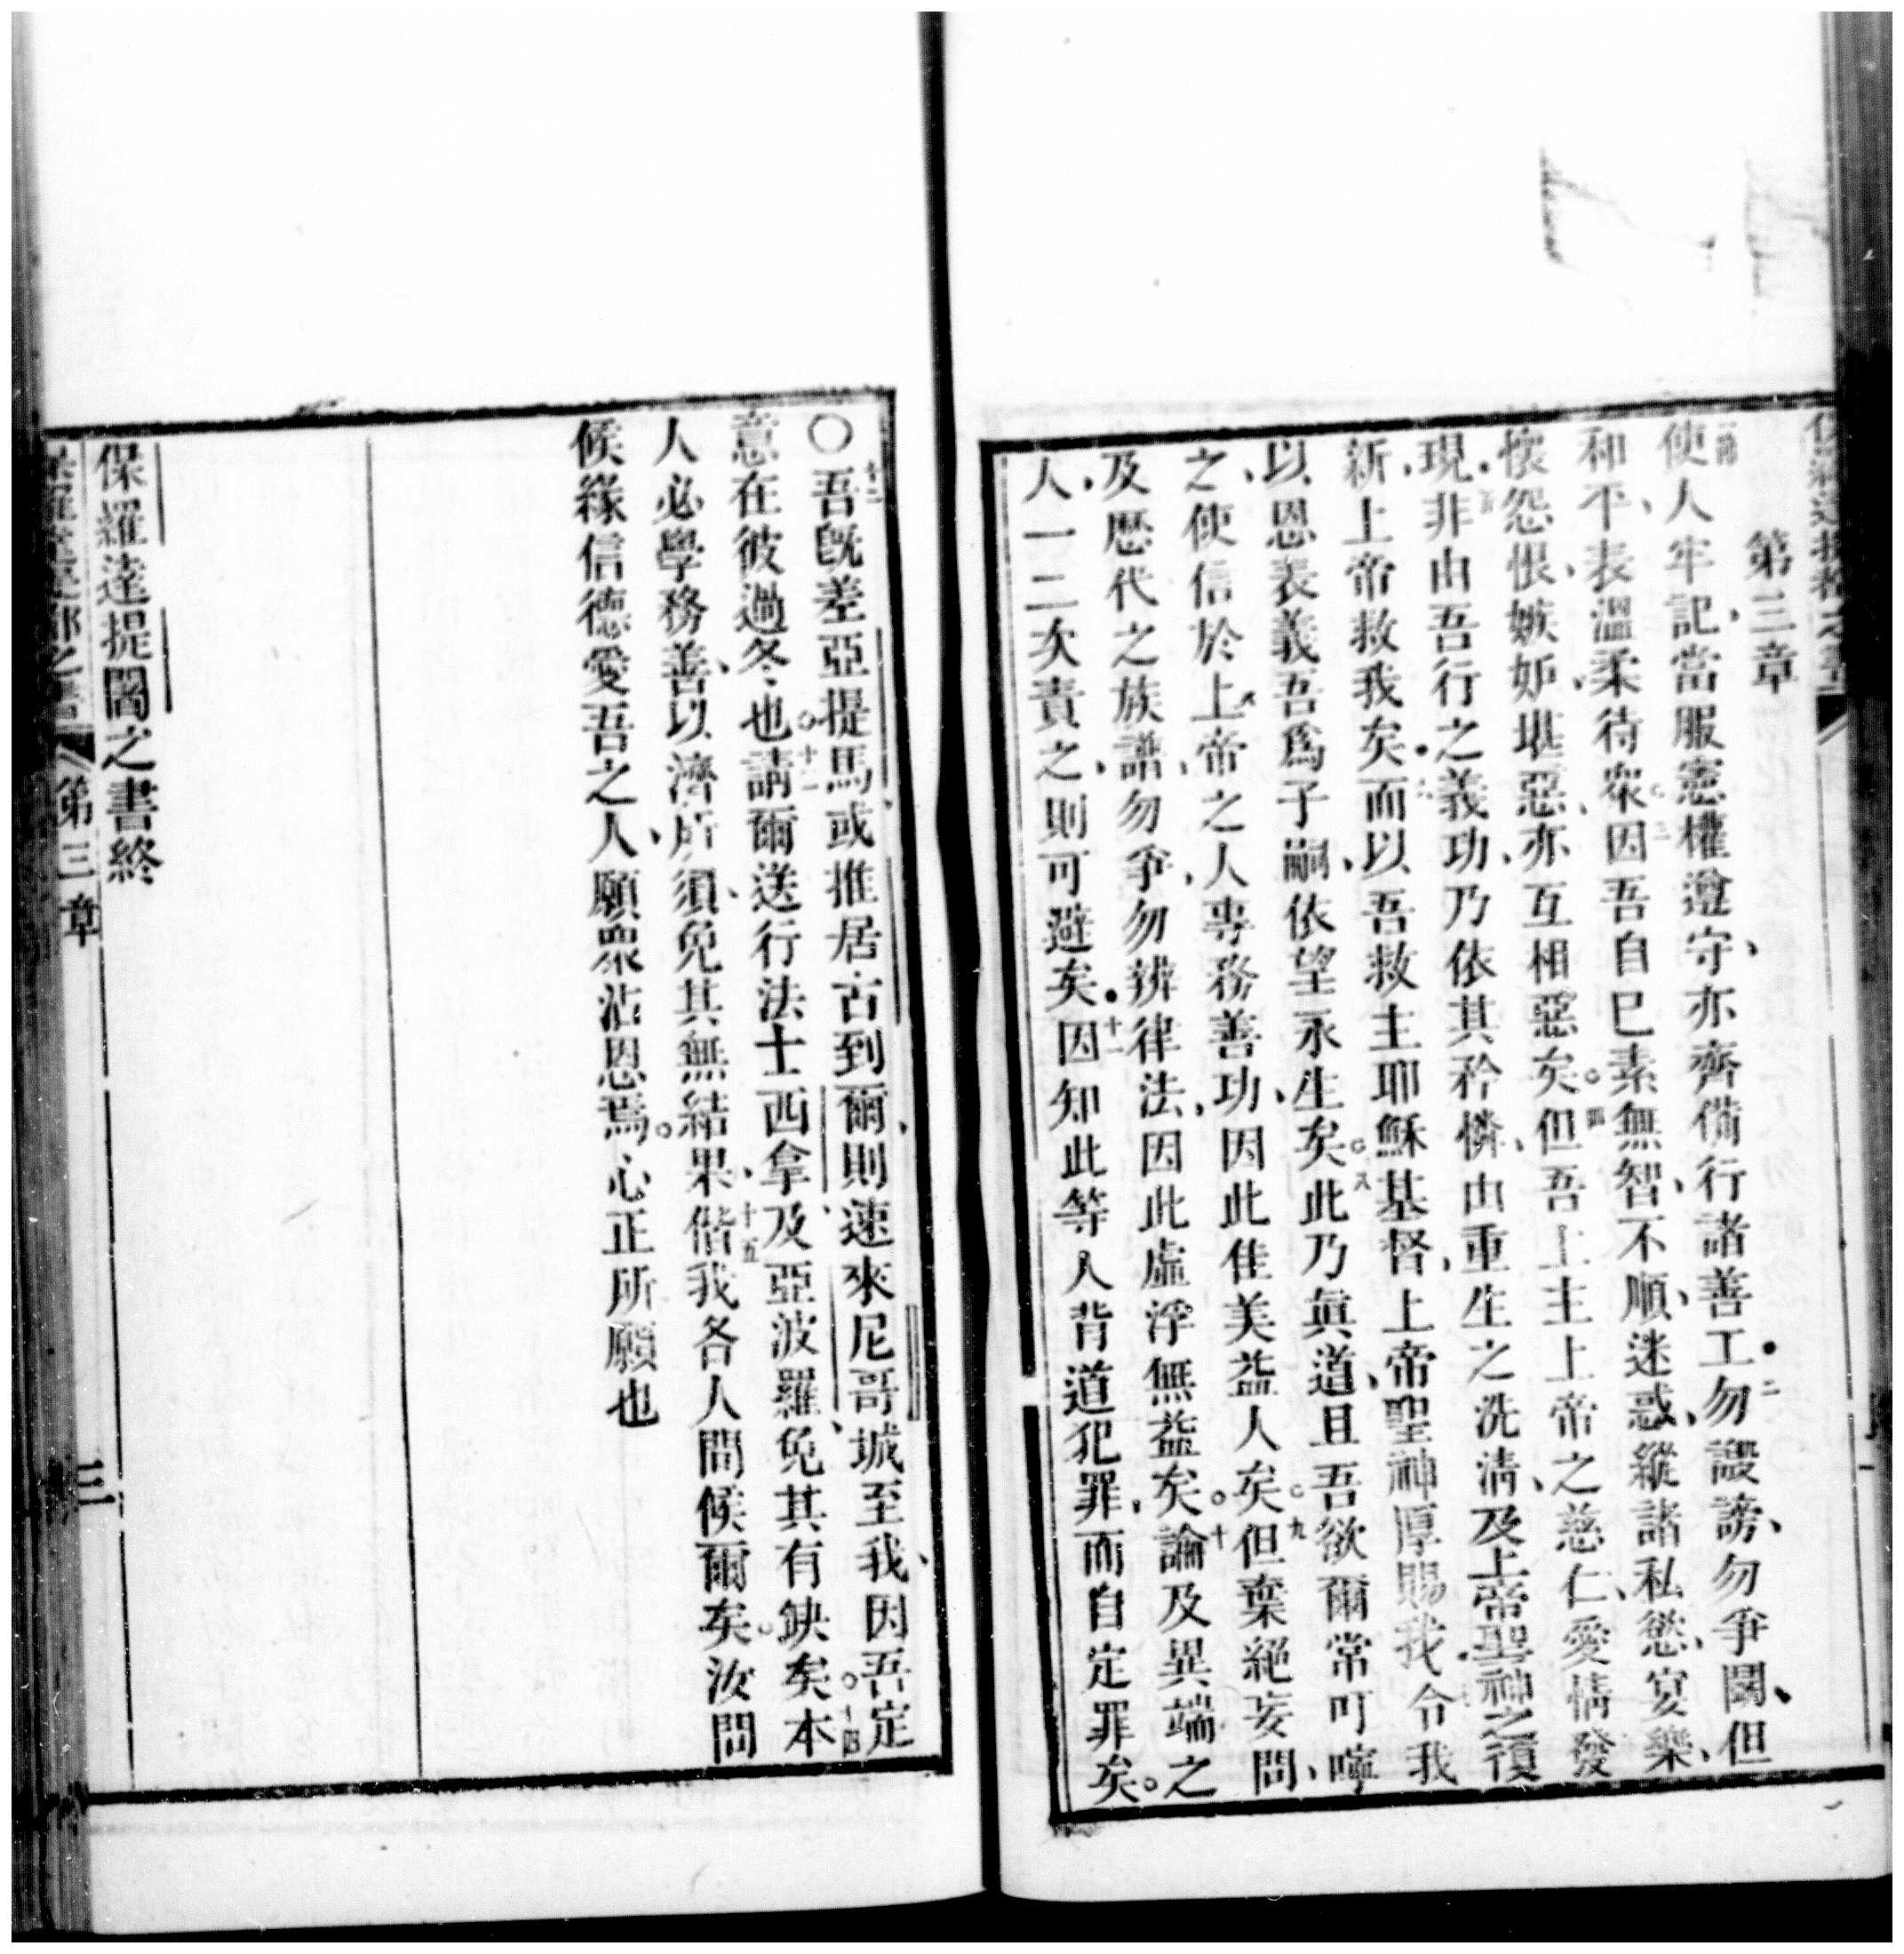 第三章
一節使人牢記、當服憲權遵守、亦齊備行諸善工。二勿譭謗、勿爭鬭、但
和平、表溫柔待衆。三因吾自己素無智、不順、迷惑、縱諸私慾、宴樂、
懷怨恨、嫉妒、堪惡、亦互相惡矣。四但吾上主上帝之慈仁、愛情發
現。五非由吾行之義功、乃依其矜憐、由重生之洗清、及上帝聖神之復
新、上帝救我矣。六而以吾救主耶穌基督、上帝聖神厚賜我。令我
以恩表義、吾爲子嗣、依望永生矣。八此乃眞道、且吾欲爾常叮嚀
之、使信於上帝之人、專務善功、因此佳美益人矣。九但棄絕妄問、
及歷代之族譜、勿爭、勿辨律法、因此虛浮無益矣。十論及異端之
人、一二次責之、則可避矣。十一因知此等人背道犯罪、而自定罪矣。
〇十二吾旣差亞提馬、或推居古到爾、則速來尼哥城至我、因吾定
意在彼過冬也。十三請爾送行法士西拿、及亞波羅、免其有缺矣。十四本
人必學務善、以濟所須、免其無結果。十五偕我各人問候爾矣。汝問
候緣信德愛吾之人、願衆沾恩焉。心正所願也
保羅達提闍之書終
第三章
三